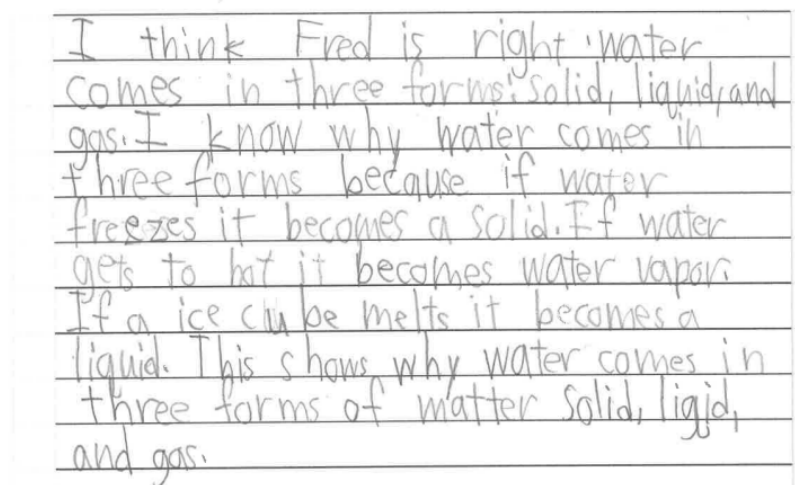 I think Fred is right. water
comes in three forms: solid, liquid, and
gas. I know why water comes in
three forms because if water
freezes it becomes a solid. If water
gets to hot it becomes water vapor.
If a ice cube melts it becomes a
liquid. This shows why water comes in
three forms of matter solid, ligid,
and gas.